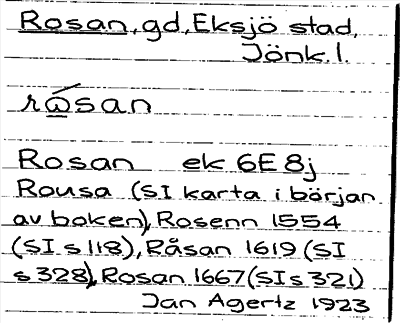 Rosan, gd, Eksjö stad,
Jönk.l.
rɷ́san
Rosan ek 6E 8j
Rousa (SI karta i början
av boken), Rosenn 1554
(SI s 118), Råsan 1619 (SI
s 328), Rosan 1667 (SI s 321)
Jan Agertz 1923